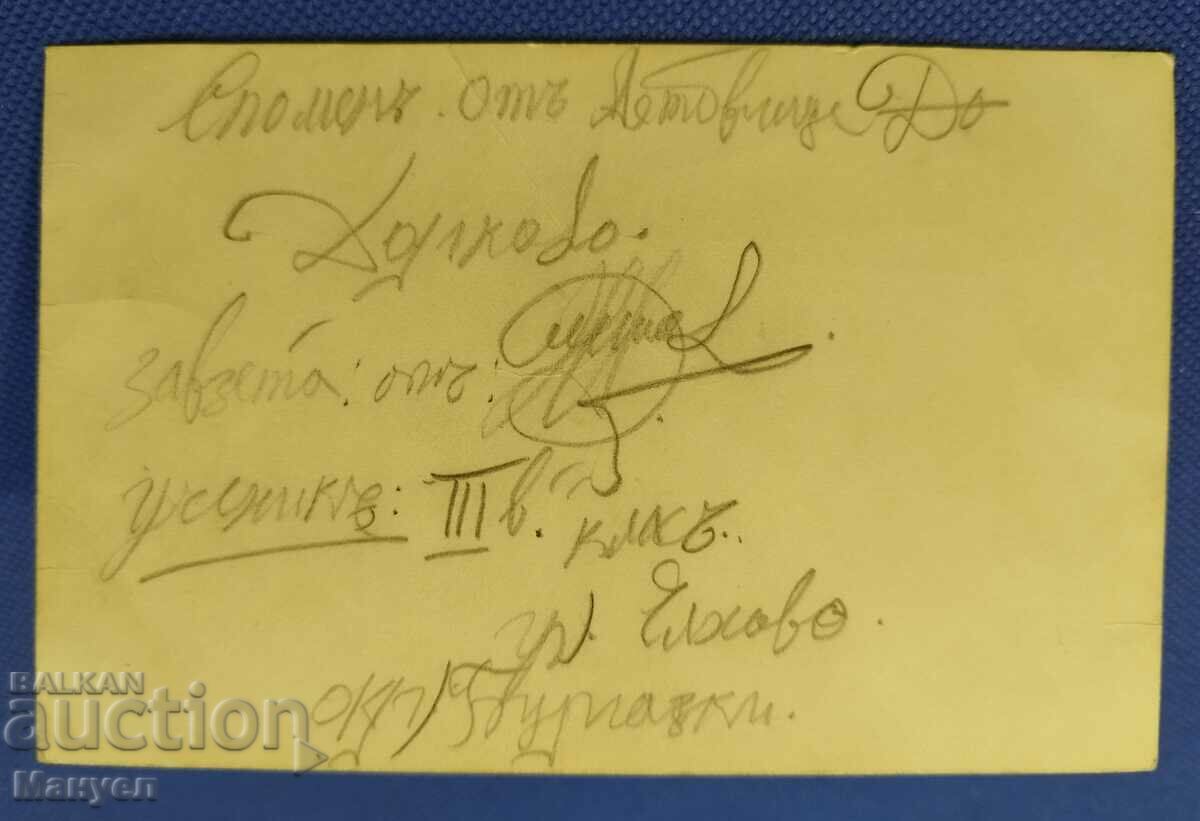 Споменъ. отъ Летовище
завзета: отъ:
ученикъ: III в. класъ.
гр. Елхово.
окр. Бургазки.
BALKAN
auction
Мануел